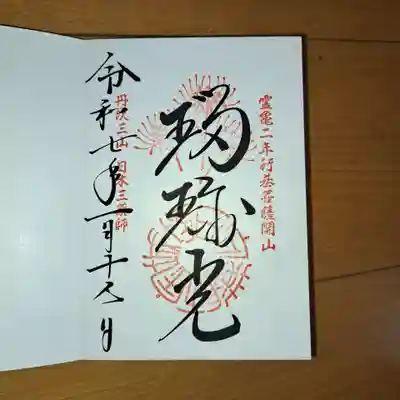 霊亀二年行基菩薩開山
瑠璃光
丹沢三山 日本三薬師
令和七年一月十日